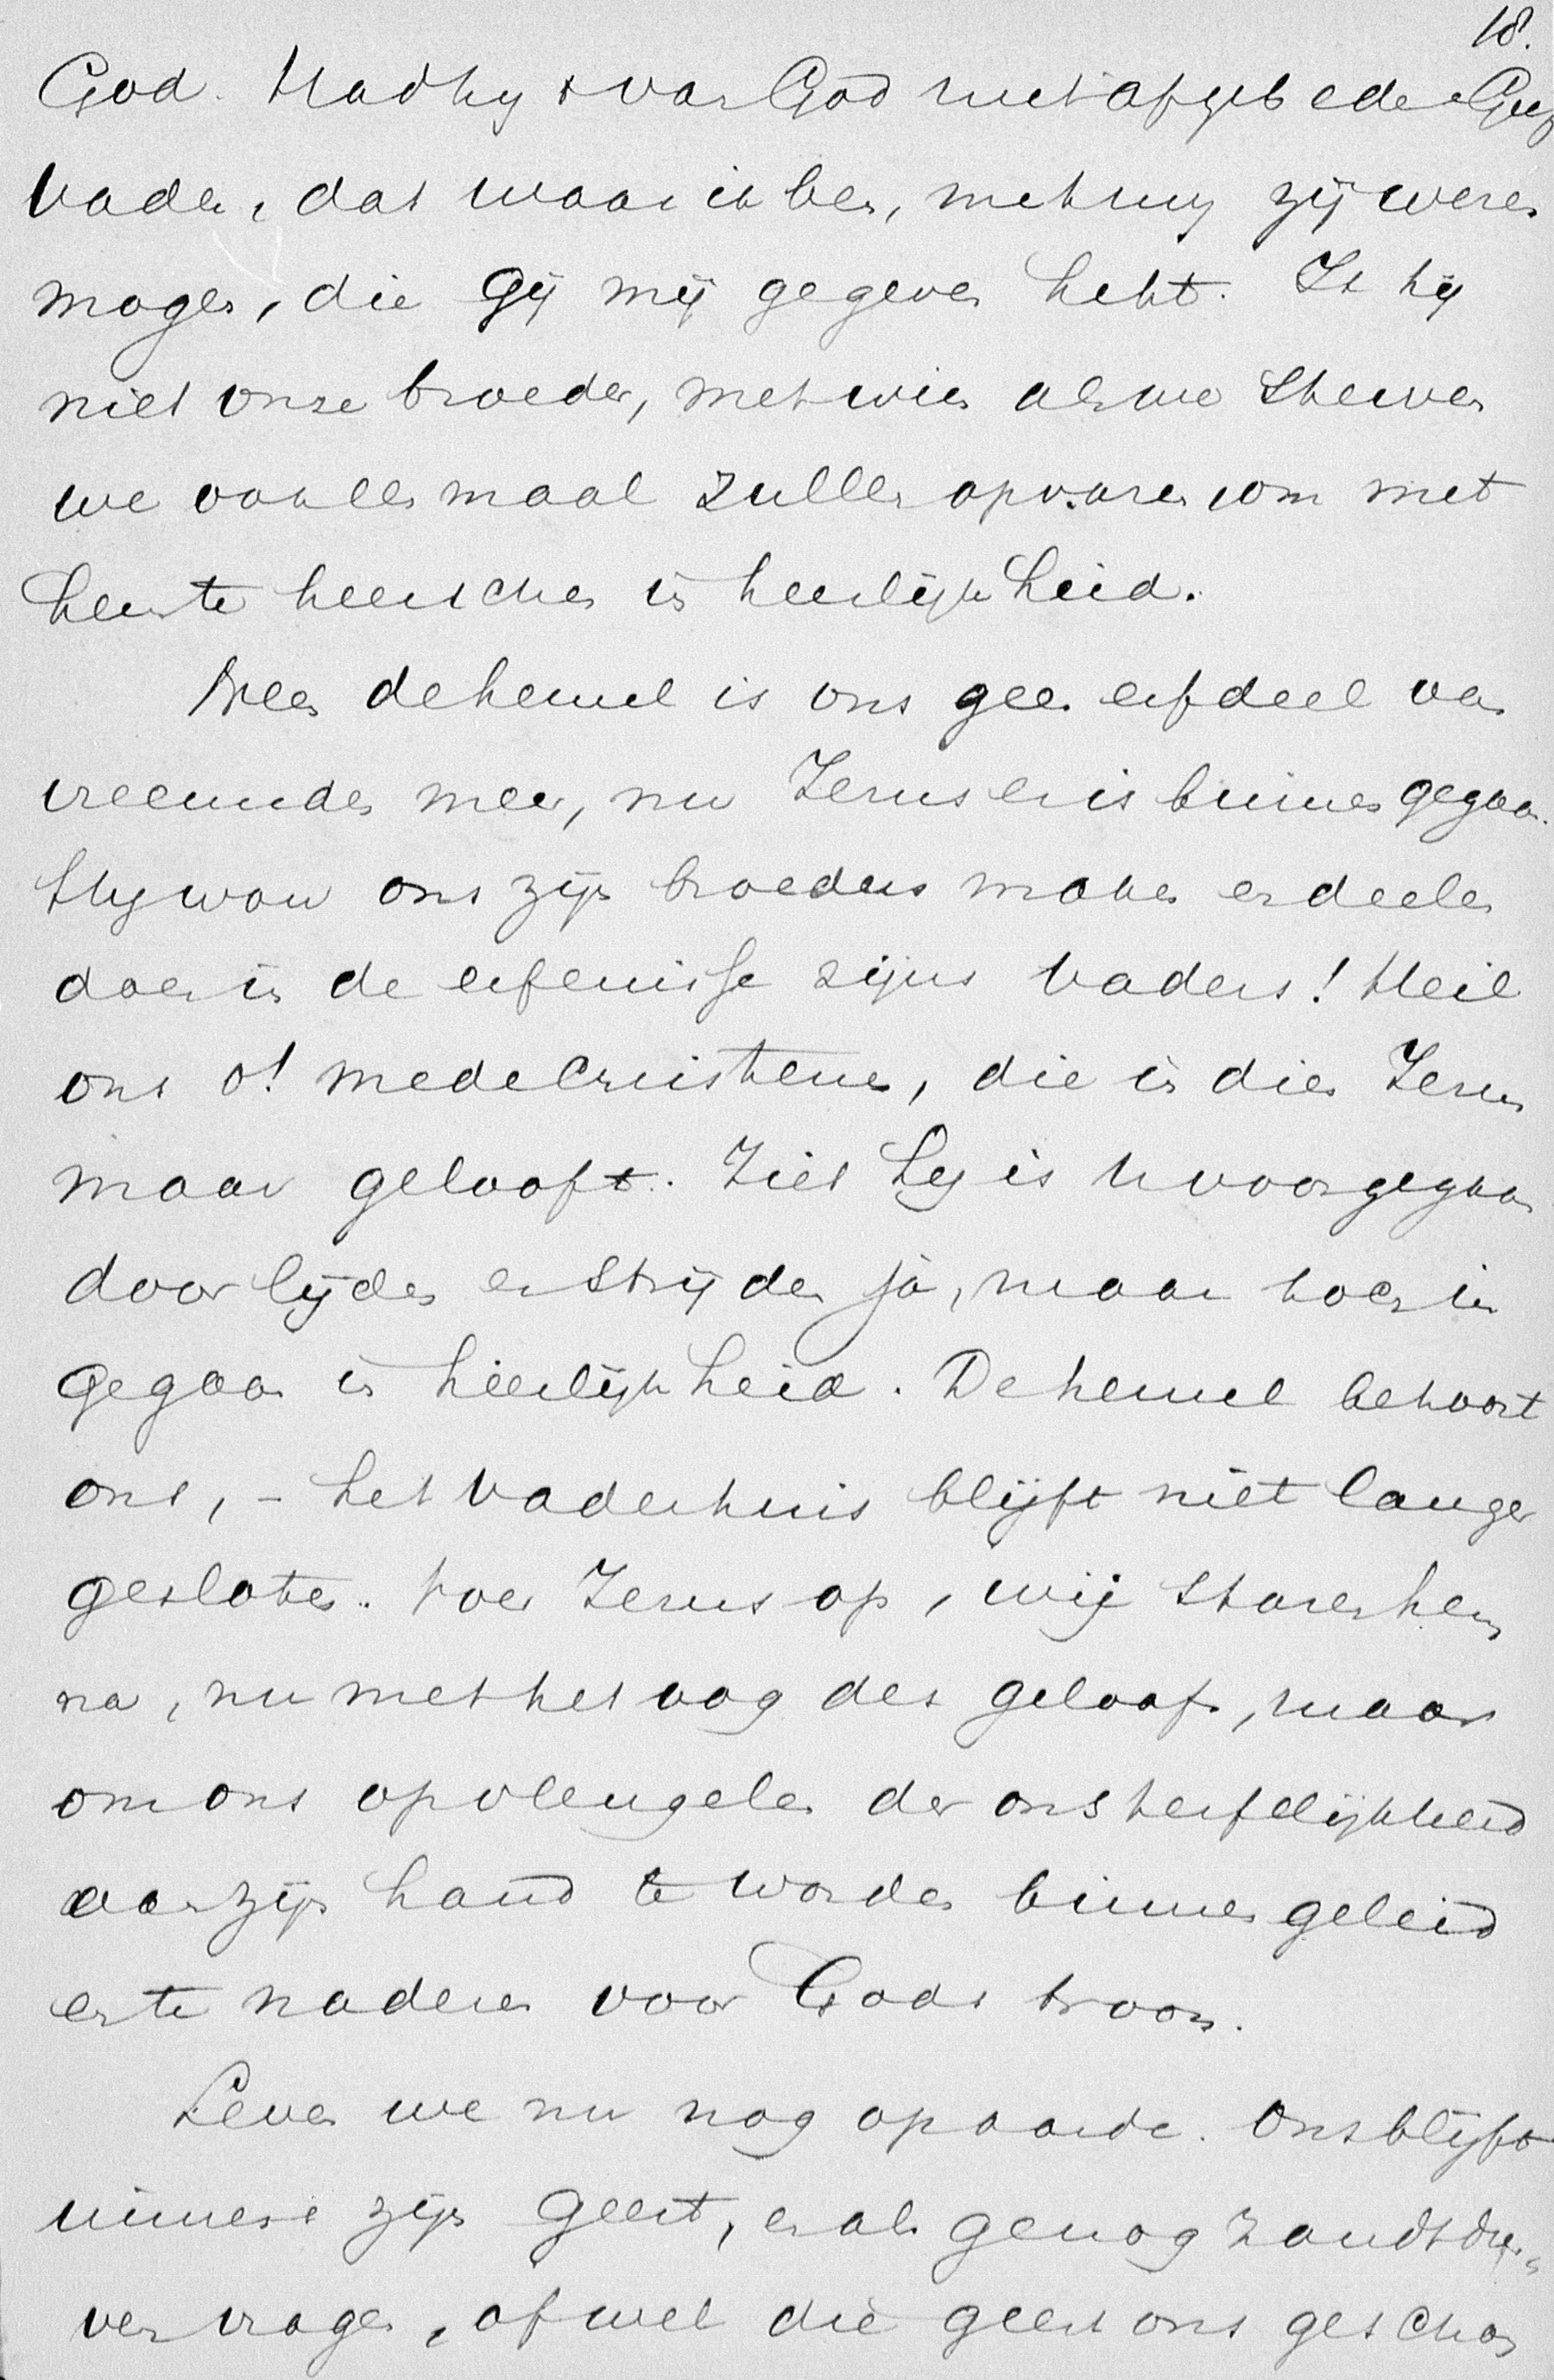 18.
God. Had hij 't van God niet afgebeden Geef
Vader, dat waar ik ben, met mij zij wezen
mogen, die Gij mij gegeven hebt. Is hij
niet onze broeder, met wien als we sterven
we ook eenmaal zullen opvaren om met
hem te heerschen in heerlijkheid.
Neen de hemel is ons geen erfdeel van
vreemden meer, nu Jezus er is binnengegaan.
Hij wou ons zijn broeders maken en deelen
doen in de erfenisse zijns Vaders! Heil
ons o! medechristenen, die in dien Jezus
maar gelooft. Ziet hij is U voorgegaan
door lijden en strijden ja, maar toen in
gegaan in heerlijkheid. De hemel behoort
ons, - het Vaderhuis blijft niet langer
gesloten. Voer Jezus op, wij staren hem
na, nu met het oog des geloofs, maar
om ons op vleugelen der onsterfelijkheid
aan zijn hand te worden binnengeleid
en te naderen voor Gods troon.
Leven we nu nog op aarde. Ons blijft
immers zijn Geest, en als ge nog zoudt dur-
ven vragen, of wel die geest ons geschon